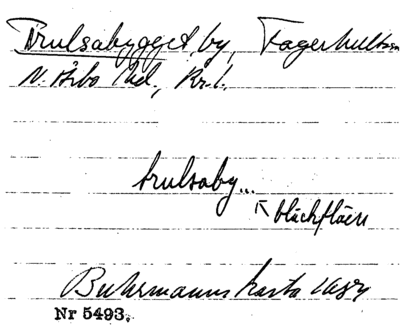 Trulsabygget, by, Fagerhults
N. Åsbo hd, Kr. l.
trulsaby...
bläckfläck
Buhrmanns karta 1684
Nr 5493.